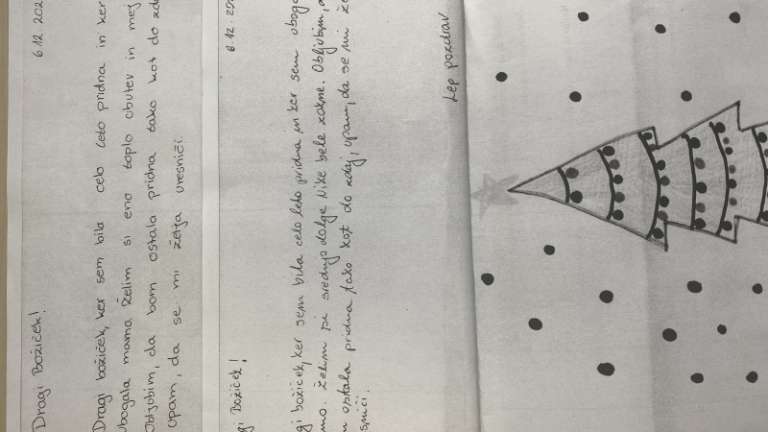 6.12.202
Dragi Božiček!
Dragi božiček, ker sem bila celo leto pridna in ker
ubogala mama želim si eno toplo obutev in mej
Obljubim, da bom ostala pridna tako kot do zda
upam, da se mi želja uresniči
6.12.202
gi Božiček!
gi božiček, ker sem bila celo leto pridna in ker sem uboga
mo. želim si srednjo dolge Nike bele zokne. Obljubim, d
m ostala pridna tako kot do zdaj, upam, da se mi že
sniči.
Lep pozdrav